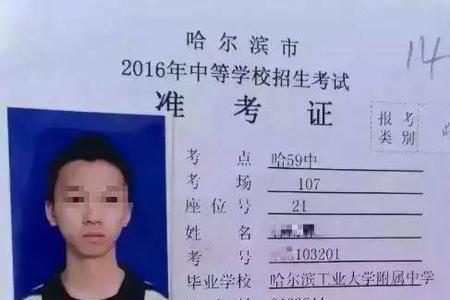 哈尔滨市
14
2016年中等学校招生考试
准考证
报考
类别
考点 哈59中
考场 107
座位号 21
姓名
考号 103201
毕业学校 哈尔滨工业大学附属中学